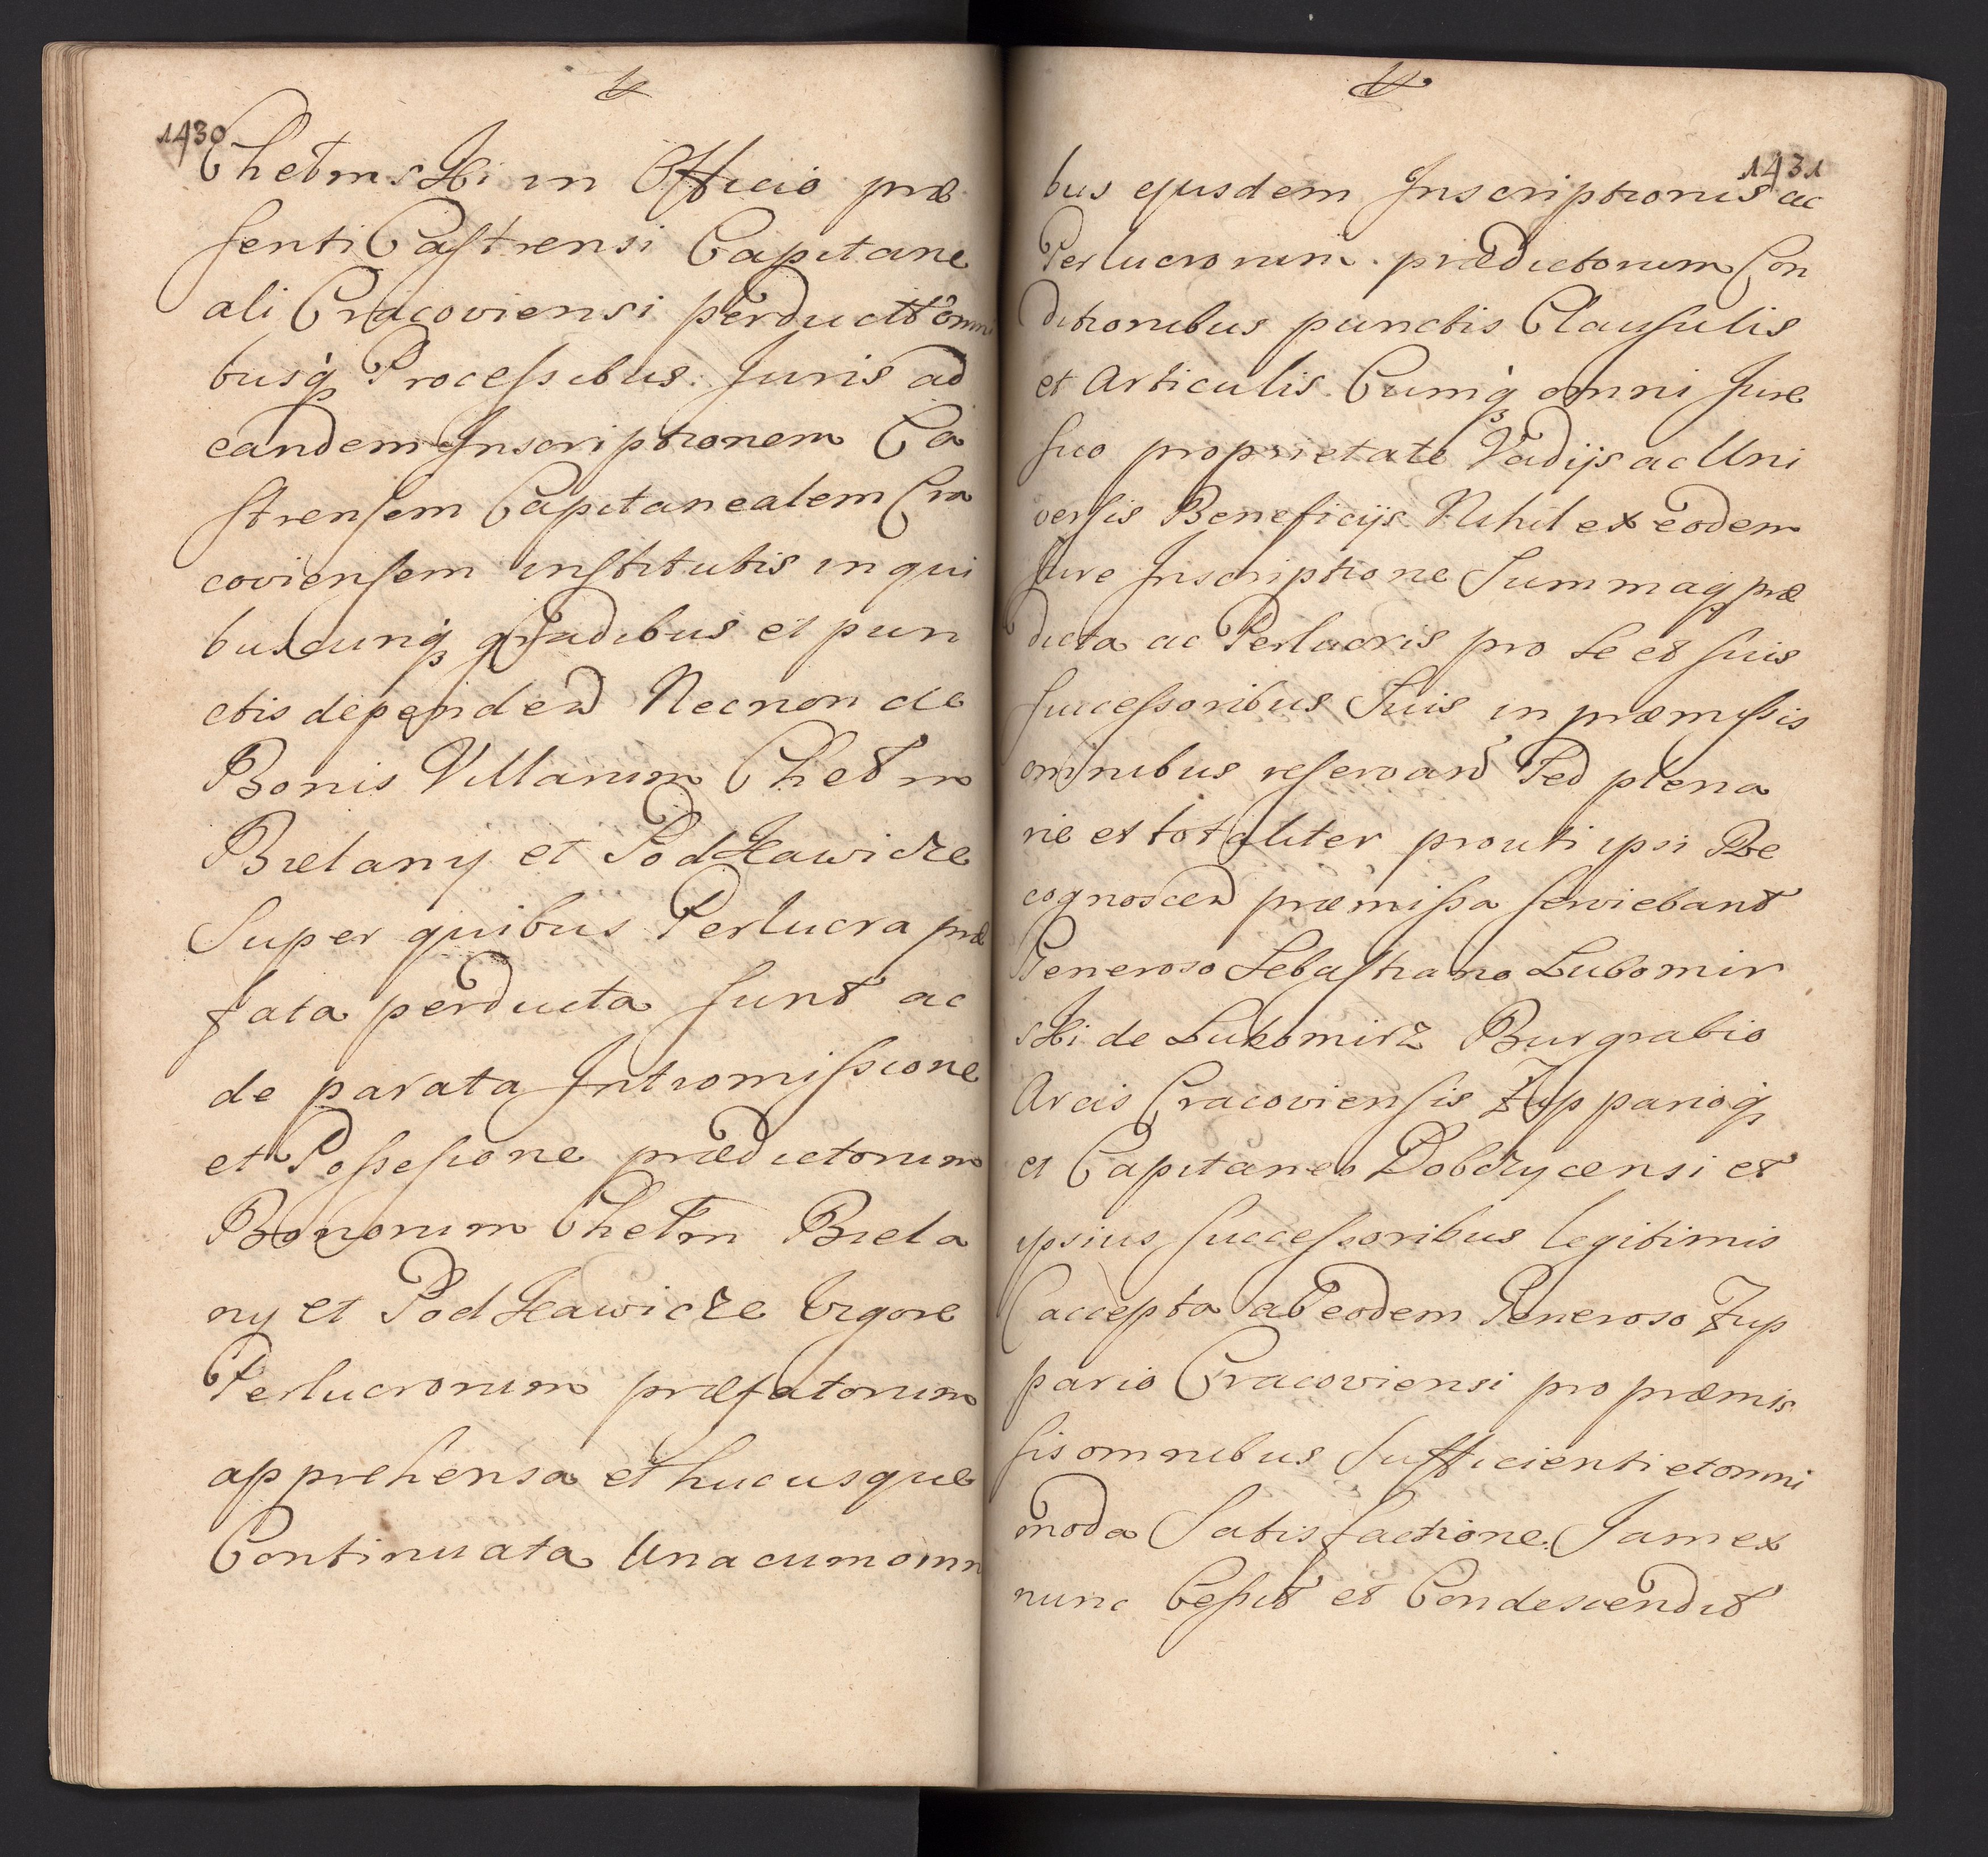 1430
Chełmski in Officio præ
senti Castrensi Capitane
ali Cracoviensi perductt omni
busq́ Processibus Juris ad
eandem Inscriptionem Ca
strensem Capitanealem Cra
coviensem institutis in qui
buscunq́ gradibus et pun
ctis dependen Necnon de
Bonis Villarum Chełm
Bielany et Podkawicze
Super quibus Perlucra præ
fata perducta sunt ac
de parata Intromissione
et Possessione prædictorum
Bonorum Chełm Biela
ny et Podkawicze Vigore
Perlucrorum præfatorum
apprehensa et hucusque
Continuata Unacum omni
1431
bus ejusdem Inscriptionis ac
Perlucrorum prædictorum Con
ditionibus punctis Clausulis
et Articulis Cumq́ omni Jure
suo proprietate Vadijs ac Uni
versis Beneficijs Nihil ex eodem
Jure Inscriptione Summaq́ præ
dicta ac Perlucris pro se et suis
successoribus Suis in præmissis
omnibus reservan Sed plena
rie et totaliter prouti ipsi Re
cognoscen præmissa serviebant
Generoso Sebastiano Lubomir
ski de Lubomirz Burgrabio
Arcis Cracoviensis Zupparioq́
et Capitaneo Dobczycensi et
ipsius successoribus legitimis
accepta ab eodem Generoso Zup
pario Cracoviensi pro præmis
sis omnibus Sufficienti et omni
moda Satisfactione. Jam ex
nunc Cessit et Condescendit